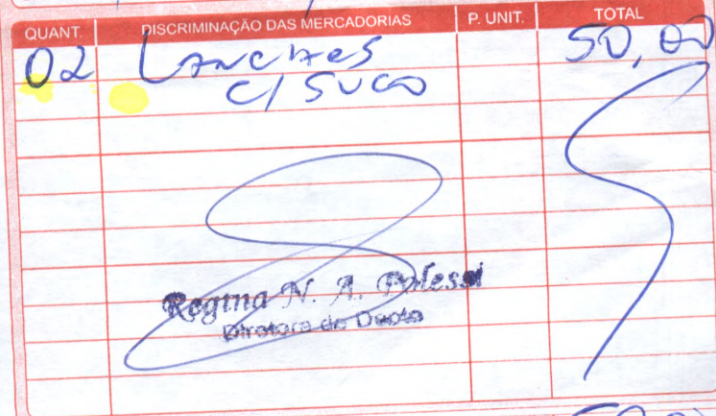 QUANT. DISCRIMINAÇÃO DAS MERCADORIAS P. UNIT. TOTAL
02 Lanches 50,00
c/ suco
Regina N. A. Polessi
Diretora de Depto
50,00